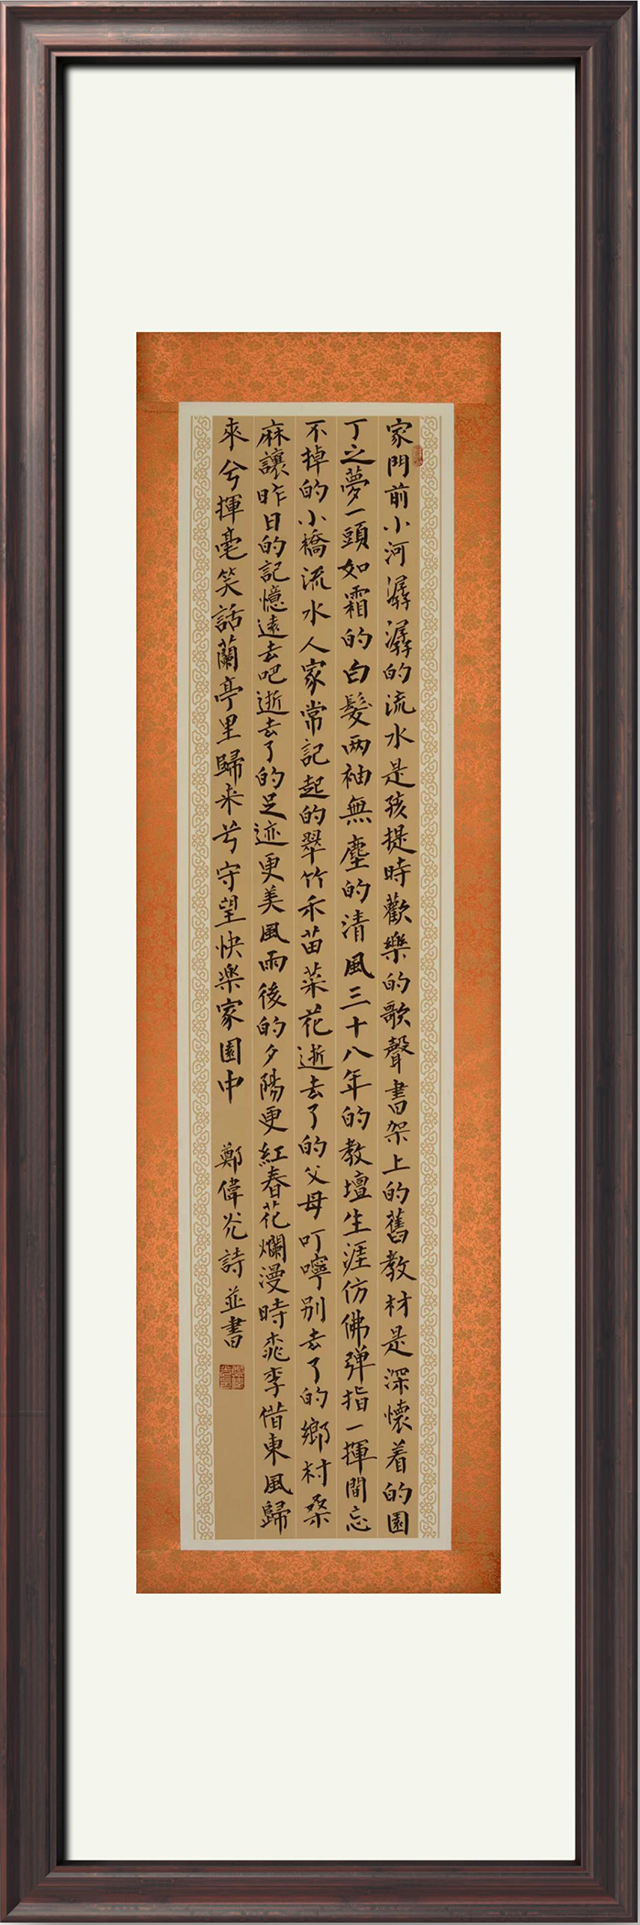 家門前小河潺潺的流水是孩提時歡樂的歌聲書架上的舊教材是深懷着的園
丁之夢一頭如霜的白髮两袖無塵的清風三十八年的教壇生涯仿佛弹指一揮間忘
不掉的小橋流水人家常記起的翠竹禾苗菜花逝去了的父母叮嚀别去了的鄉村桑
麻讓昨日的記憶遠去吧逝去了的足迹更美風雨後的夕陽更紅春花爛漫時桃李借東風歸
來兮揮毫笑話蘭亭里歸来兮守望快楽家園中
鄭偉光詩並書